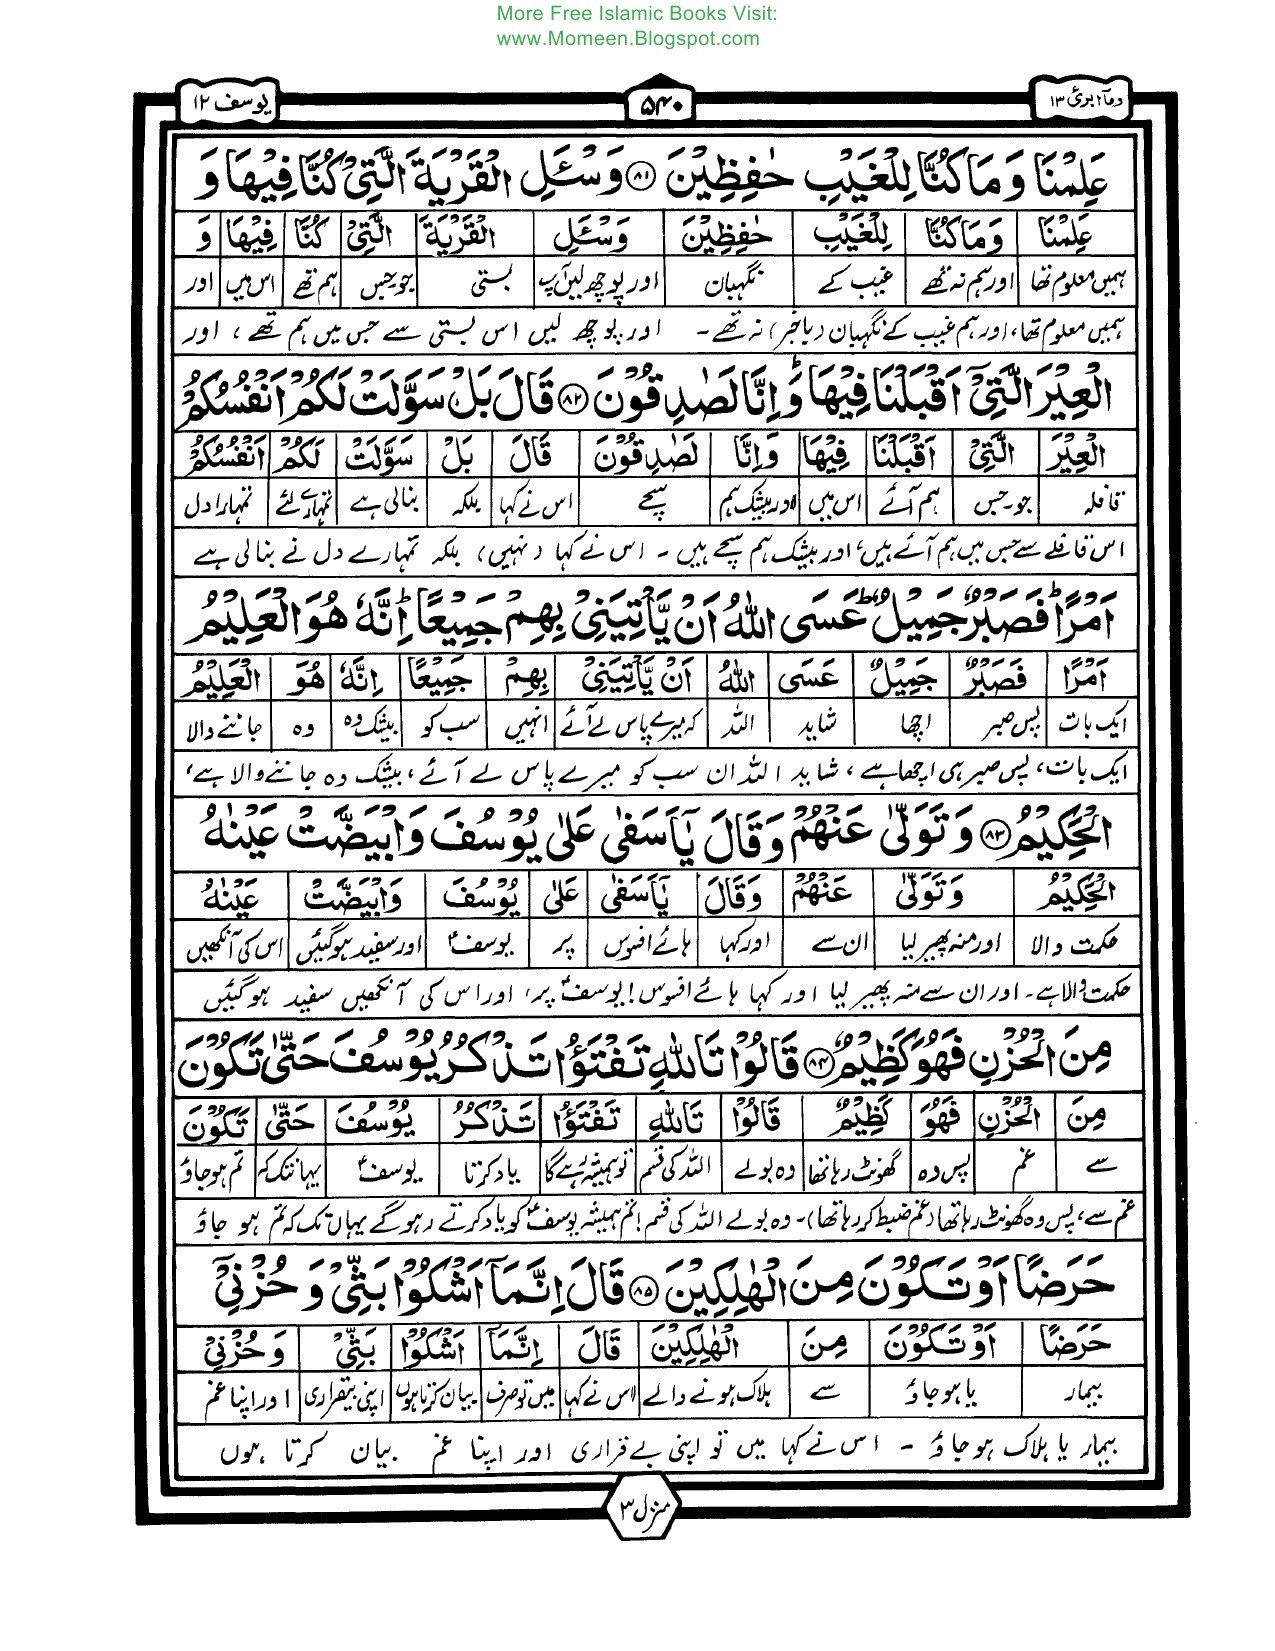 More Free Islamic Books Visit:
www.Momeen.Blogspot.com
وما ابرئ ۱۳
۵۴۰
یوسف ۱۲
عَلِمْنَا وَمَا كُنَّا لِلْغَيْبِ حٰفِظِيْنَ ۸۱ وَسْئَلِ الْقَرْيَةَ الَّتِيْ كُنَّا فِيْهَا وَ
عَلِمْنَا وَمَا كُنَّا لِلْغَيْبِ حٰفِظِيْنَ وَسْئَلِ الْقَرْيَةَ الَّتِيْ كُنَّا فِيْهَا وَ
ہمیں معلوم تھا اور ہم نہ تھے غیب کے نگہبان اور پوچھ لیں آپ بستی جو جس ہم تھے اس میں اور
ہمیں معلوم تھا، اور ہم غیب کے نگہبان (باخبر) نہ تھے۔ اور پوچھ لیں اس بستی سے جس میں ہم تھے، اور
الْعِيْرَ الَّتِيْٓ اَقْبَلْنَا فِيْهَا ؕ وَاِنَّا لَصٰدِقُوْنَ ۸۲ قَالَ بَلْ سَوَّلَتْ لَكُمْ اَنْفُسُكُمْ
الْعِيْرَ الَّتِيْٓ اَقْبَلْنَا فِيْهَا وَاِنَّا لَصٰدِقُوْنَ قَالَ بَلْ سَوَّلَتْ لَكُمْ اَنْفُسُكُمْ
قافلہ جو جس ہم آئے اس میں اور بیشک ہم سچے اس نے کہا بلکہ بنالی ہے تمہارے لئے تمہارا دل
اس قافلے سے جس میں ہم آئے ہیں، اور بیشک ہم سچے ہیں۔ اس نے کہا (نہیں) بلکہ تمہارے دل نے بنالی ہے
اَمْرًا ؕ فَصَبْرٌ جَمِيْلٌ ؕ عَسَى اللّٰهُ اَنْ يَّاْتِيَنِيْ بِهِمْ جَمِيْعًا ؕ اِنَّهٗ هُوَ الْعَلِيْمُ
اَمْرًا فَصَبْرٌ جَمِيْلٌ عَسَى اللّٰهُ اَنْ يَّاْتِيَنِيْ بِهِمْ جَمِيْعًا اِنَّهٗ هُوَ الْعَلِيْمُ
ایک بات پس صبر اچھا شاید اللہ کہ میرے پاس لے آئے انہیں سب کو بیشک وہ وہ جاننے والا
ایک بات، پس صبر ہی اچھا ہے، شاید اللہ ان سب کو میرے پاس لے آئے، بیشک وہ جاننے والا ہے،
الْحَكِيْمُ ۸۳ وَتَوَلّٰى عَنْهُمْ وَقَالَ يٰٓاَسَفٰى عَلٰى يُوْسُفَ وَابْيَضَّتْ عَيْنٰهُ
الْحَكِيْمُ وَتَوَلّٰى عَنْهُمْ وَقَالَ يٰٓاَسَفٰى عَلٰى يُوْسُفَ وَابْيَضَّتْ عَيْنٰهُ
حکمت والا اور منہ پھیر لیا ان سے اور کہا ہائے افسوس پر یوسفؑ اور سفید ہوگئیں اس کی آنکھیں
حکمت والا ہے۔ اور ان سے منہ پھیر لیا اور کہا ہائے افسوس! یوسفؑ پر، اور اس کی آنکھیں سفید ہوگئیں
مِنَ الْحُزْنِ فَهُوَ كَظِيْمٌ ۸۴ قَالُوْا تَاللّٰهِ تَفْتَؤُا تَذْكُرُ يُوْسُفَ حَتّٰى تَكُوْنَ
مِنَ الْحُزْنِ فَهُوَ كَظِيْمٌ قَالُوْا تَاللّٰهِ تَفْتَؤُا تَذْكُرُ يُوْسُفَ حَتّٰى تَكُوْنَ
سے غم پس وہ گھونٹ رہا تھا وہ بولے اللہ کی قسم تو ہمیشہ رہے گا یاد کرتا یوسفؑ یہانتک کہ تم ہو جاؤ
غم سے، پس وہ گھونٹ رہا تھا (غم ضبط کر رہا تھا)۔ وہ بولے اللہ کی قسم! تم ہمیشہ یوسفؑ کو یاد کرتے رہوگے یہاں تک کہ تم ہو جاؤ
حَرَضًا اَوْ تَكُوْنَ مِنَ الْهٰلِكِيْنَ ۸۵ قَالَ اِنَّمَآ اَشْكُوْا بَثِّيْ وَحُزْنِيْٓ
حَرَضًا اَوْ تَكُوْنَ مِنَ الْهٰلِكِيْنَ قَالَ اِنَّمَآ اَشْكُوْا بَثِّيْ وَحُزْنِيْٓ
بیمار یا ہو جاؤ سے ہلاک ہونے والے اس نے کہا میں تو صرف بیان کرتا ہوں اپنی بیقراری اور اپنا غم
بیمار یا ہلاک ہو جاؤ۔ اس نے کہا میں تو اپنی بے قراری اور اپنا غم بیان کرتا ہوں
منزل ۳